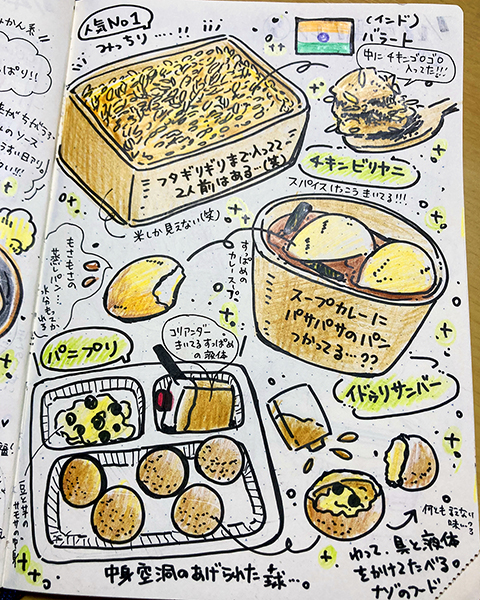 人気No.1
みっちり....!!
(インド)
バラート
中にチキンゴロゴロ
入ってた!!!
フタギリギリまで入ってて
2人前はある...(笑)
チキンビリヤニ
スパイスけっこうきいてる!!!
米しか見えない(笑)
もさもさの
蒸しパン...
水分もってかれる
すっぱめの
カレースープ
スープカレーに
パサパサのパン
つかってる...??
コリアンダー
きいてるすっぱめ
の液体
パニプリ
イドゥリサンバー
豆と芋の
サモサの中身
何とも言えない
味...??
わって、具と液体
をかけてたべる。
ナゾのフード
中身空洞のあげられた球...。